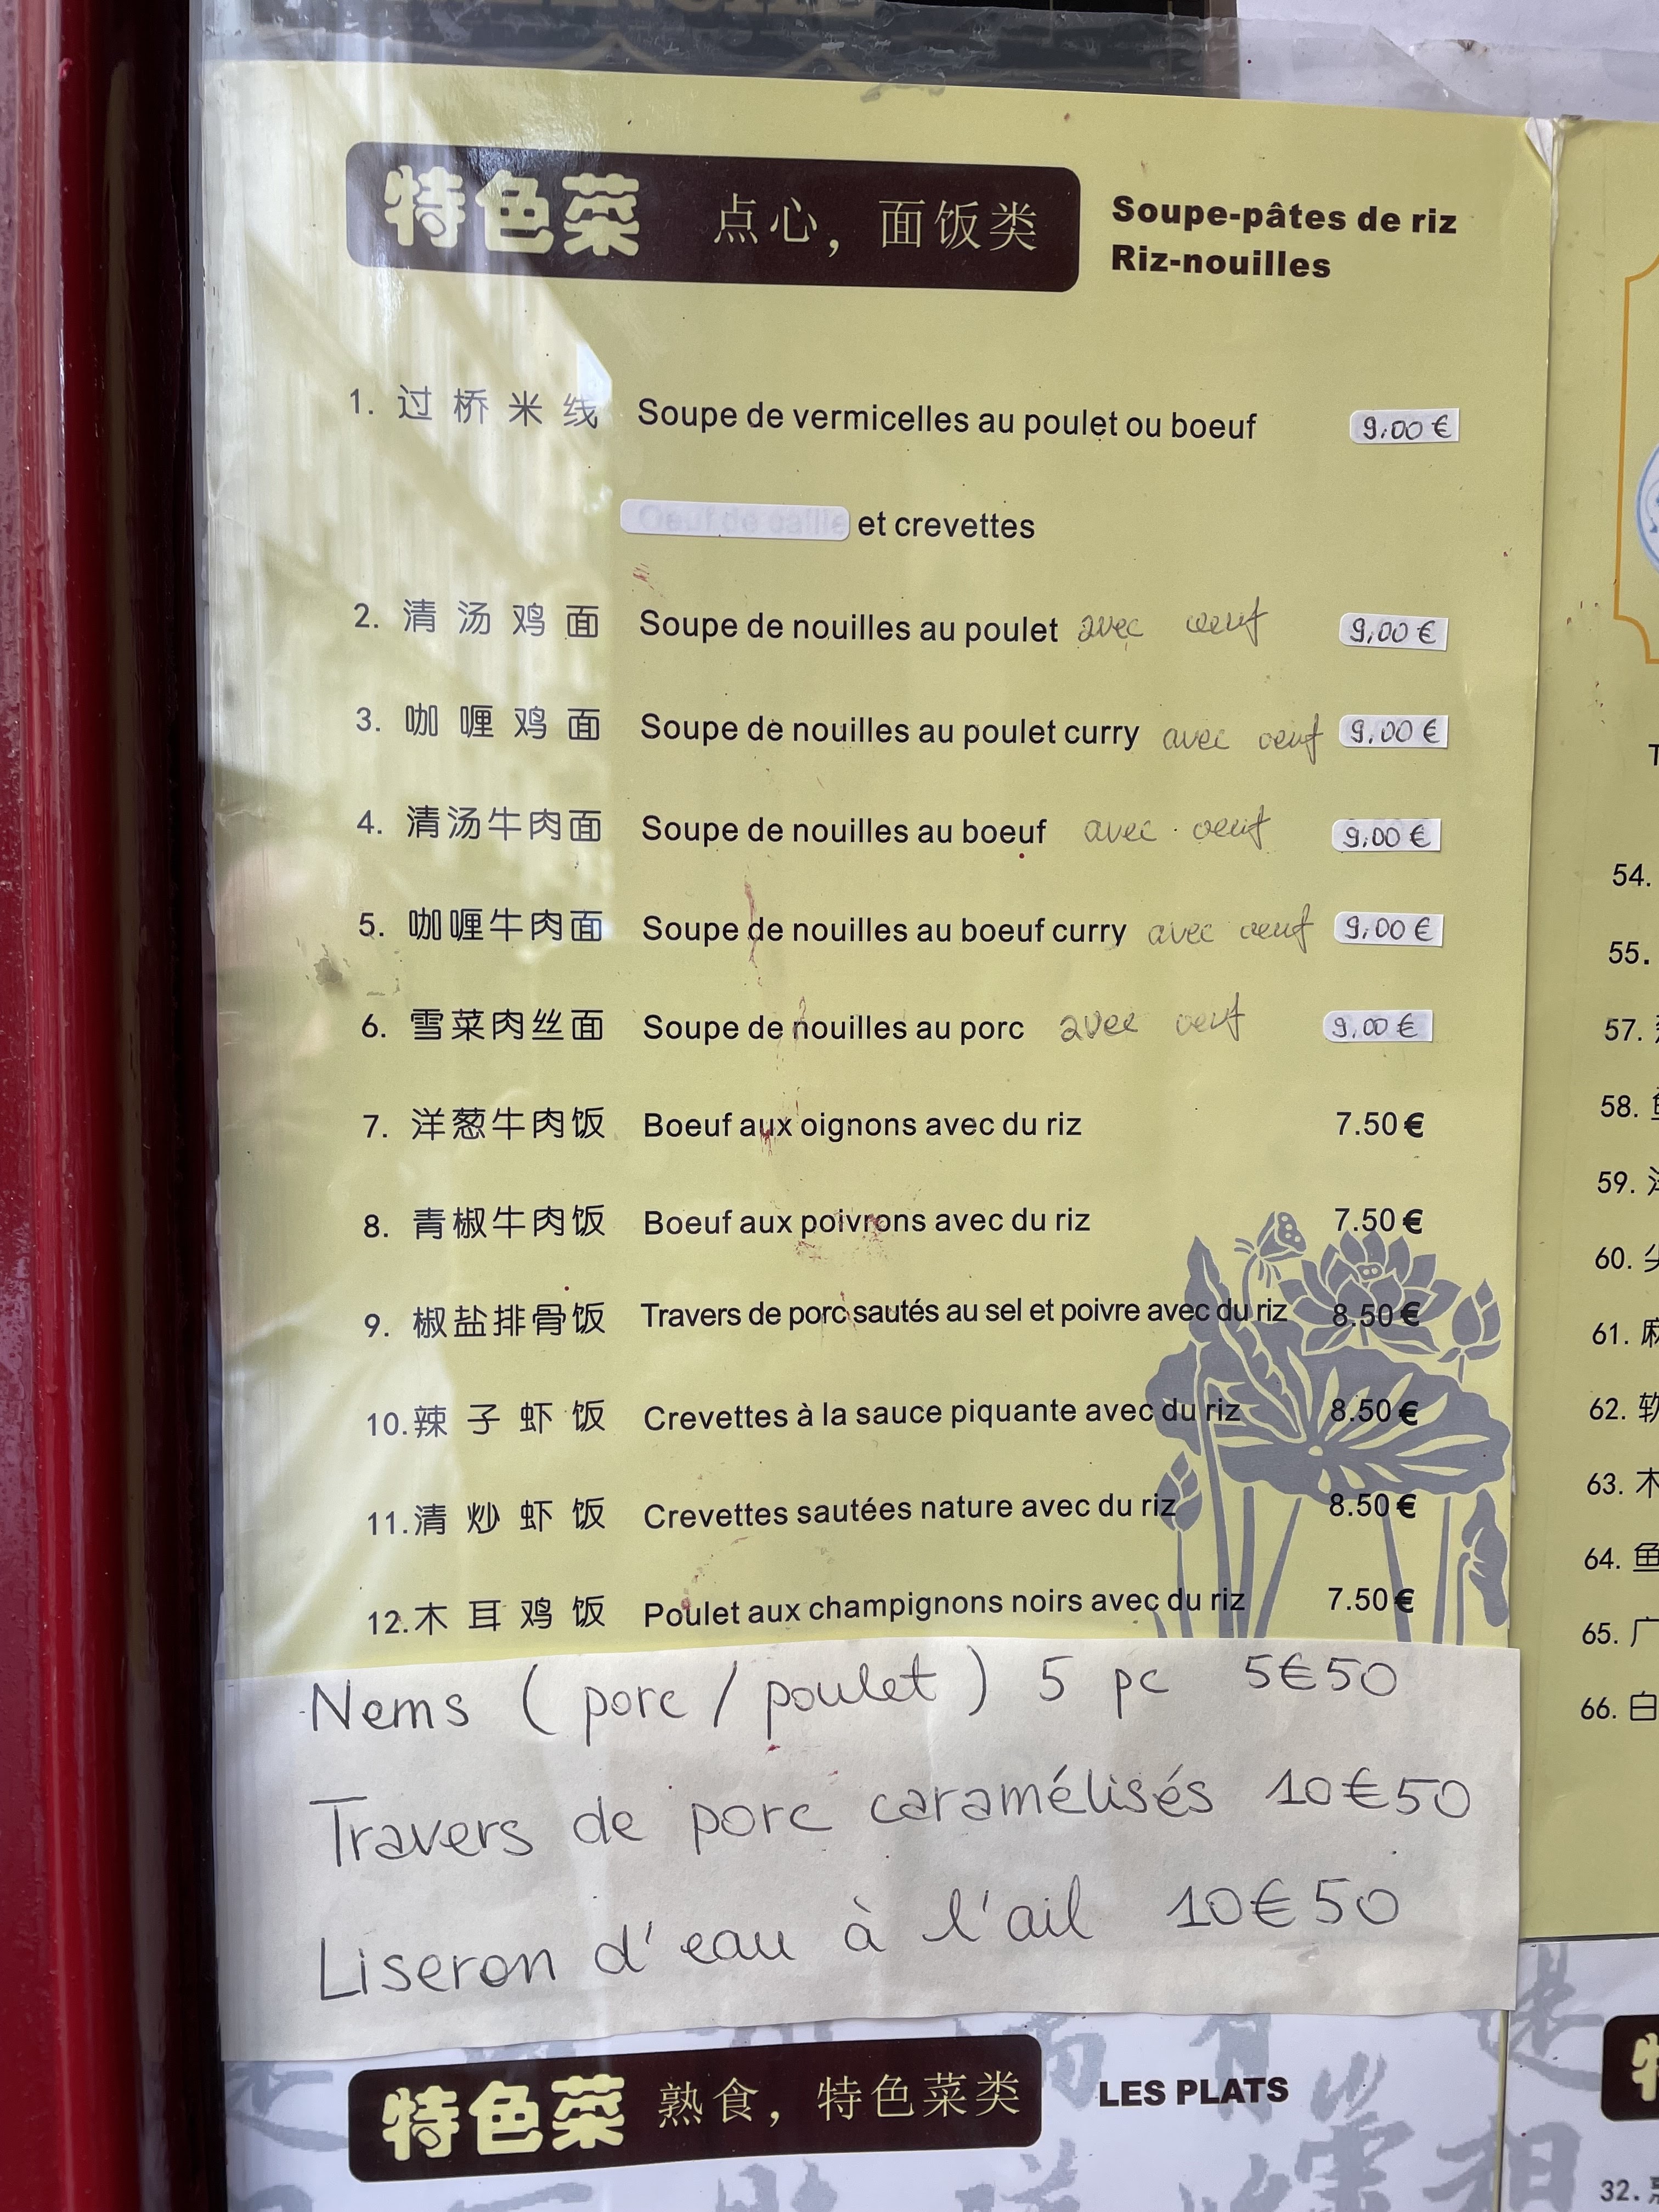 特色菜 点心，面饭类
Soupe-pâtes de riz
Riz-nouilles
1. 过桥米线 Soupe de vermicelles au poulet ou boeuf 9,00 €
Oeuf de caille et crevettes
2. 清汤鸡面 Soupe de nouilles au poulet avec oeuf 9,00 €
3. 咖喱鸡面 Soupe de nouilles au poulet curry avec oeuf 9,00 €
4. 清汤牛肉面 Soupe de nouilles au boeuf avec oeuf 9,00 €
5. 咖喱牛肉面 Soupe de nouilles au boeuf curry avec oeuf 9,00 €
6. 雪菜肉丝面 Soupe de nouilles au porc avec oeuf 9,00 €
7. 洋葱牛肉饭 Boeuf aux oignons avec du riz 7.50 €
8. 青椒牛肉饭 Boeuf aux poivrons avec du riz 7.50 €
9. 椒盐排骨饭 Travers de porc sautés au sel et poivre avec du riz 8.50 €
10. 辣子虾饭 Crevettes à la sauce piquante avec du riz 8.50 €
11. 清炒虾饭 Crevettes sautées nature avec du riz 8.50 €
12. 木耳鸡饭 Poulet aux champignons noirs avec du riz 7.50 €
Nems ( porc / poulet ) 5 pc 5€50
Travers de porc caramélisés 10€50
Liseron d'eau à l'ail 10€50
特色菜 熟食，特色菜类
LES PLATS
54.
55.
57.
58.
59.
60.
61.
62.
63. 木
64. 鱼
65. 广
66. 白
32.